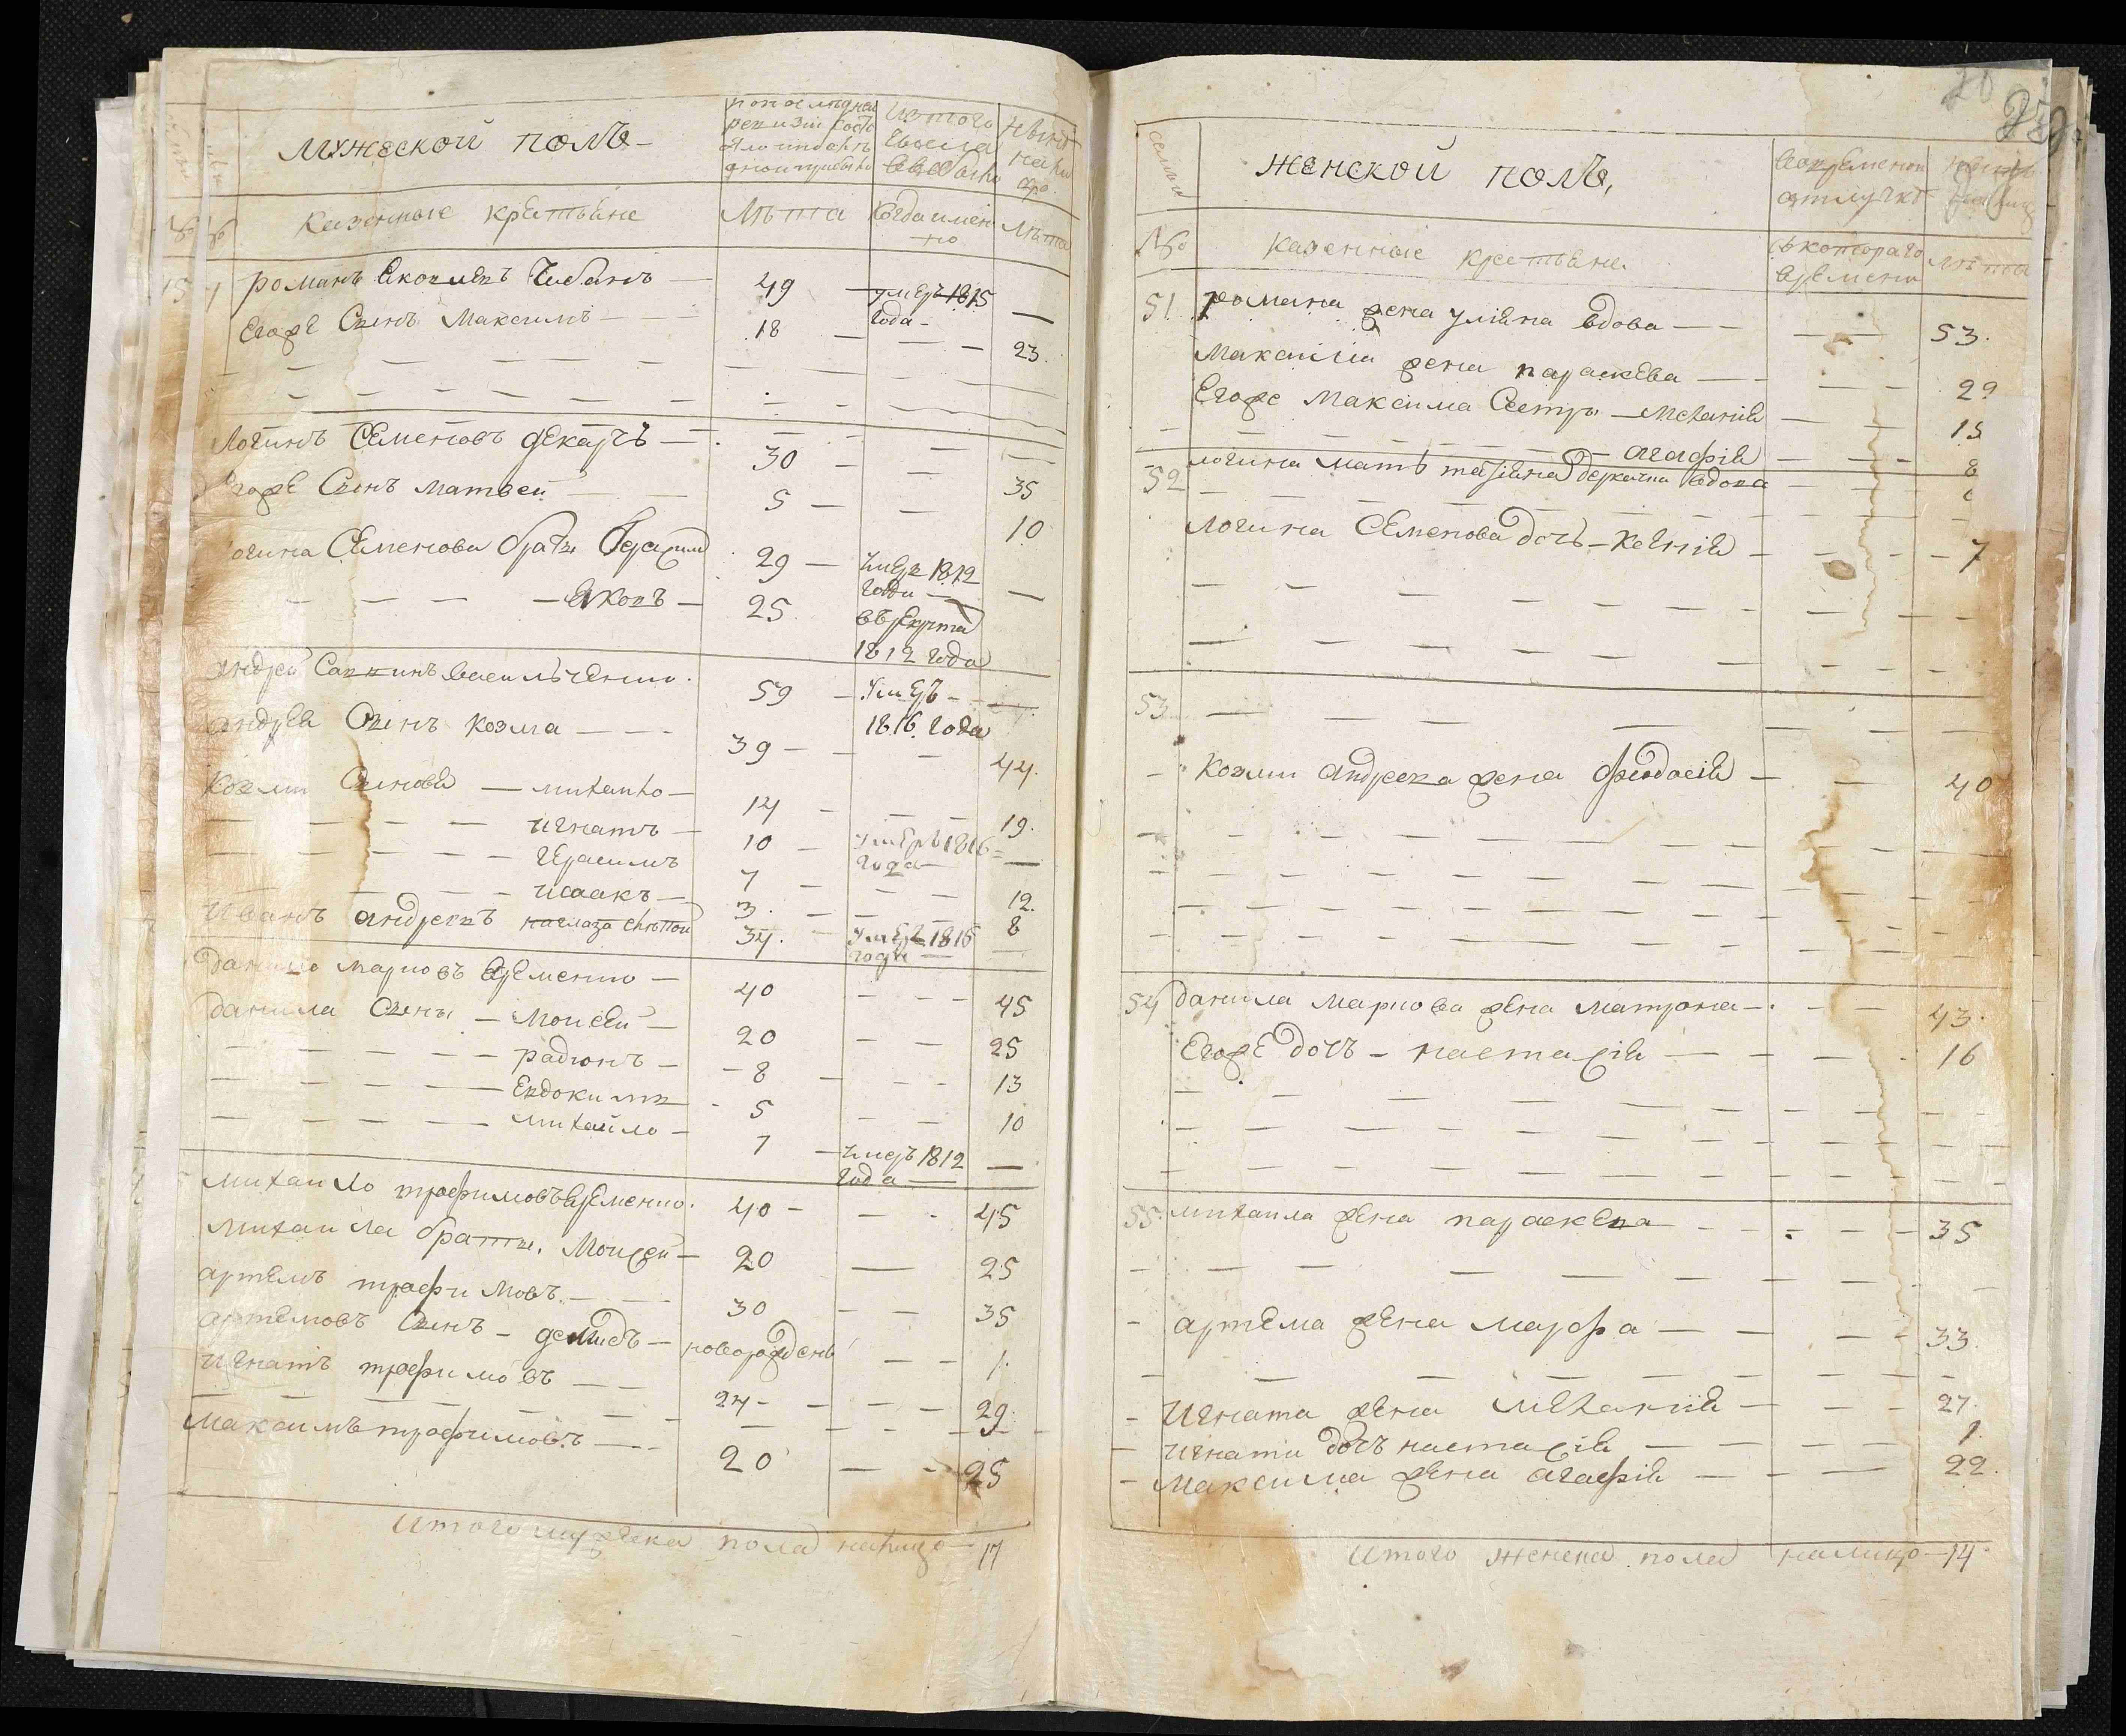 мужеской полъ
по последней
ревизии состо
яло и послѣ
оной прибыло
Изтого
числа
выбыло
Нынѣ
на ли
цо
№
№
Казенные крестьяне
Лѣта
Когда имен
но
Лѣта
51 романъ яковлевъ Чабанъ — 49 — умеръ 1815
года —
Егоже Сынъ Максимъ — 18 — 23.
Логинъ Семеновъ декарчъ — 30 — 35
Егоже Сынъ матвеи — 5 — 10
Логина Семенова братъя Герасим 29 — умеръ 1812
года —
— яковъ — 25 в рекруты
1812 года
андрей Саввинъ васильченко. 59 — Умеръ —
1816 года
андрея Сынъ козма — 39 — 44.
Козмы Сыновья — михаило — 14 — 19.
игнатъ — 10 — умеръ 1816
года —
Герасимъ 7 — 12.
исаакъ — 3. — 8
Иванъ андреевъ на глаза слѣпои 34. — умеръ 1815
года —
Данило марковъ Яременко — 40 — 45
данила Сыны — Моисеи — 20 — 25
радионъ — 8 — 13
Евдокимъ 5 — 10
михайло — 7 — умеръ 1812
года —
михаило трофимовъ Яременко. 40 — 45
михаила братья. Моисеи — 20 — 25
артемъ трофимовъ. — 30 — 35
артемовъ Сынъ — демидъ — новорожденъ — 1.
игнатъ трофимовъ — 24 — 29.
Максимъ трофимовъ. — 20 — 25
Итого мужеска пола налицо — 17
20
семьи
женской полъ,
Во временной
отлучке
№
казенные крестьяне.
съ котораго
времени
лѣта
51 романа жена улияна вдова — 53.
максима жена параскева — 29
Егоже Максима Сестры — мелания — 15
— агафия — 8
52 логина мать татияна деркачка вдова
логина Семенова дочь — Ксения — 7
53
козмы андреева жена феодосия — 40
54 данила маркова жена матрона — 43.
Егоже дочь — настасия — 16
55. михаила жена параскева — 35
артема жена марфа — 33.
Игната жена мелания — 27.
игната дочь настасия — 1.
максима жена агафия — 22.
Итого женска пола налицо — 14